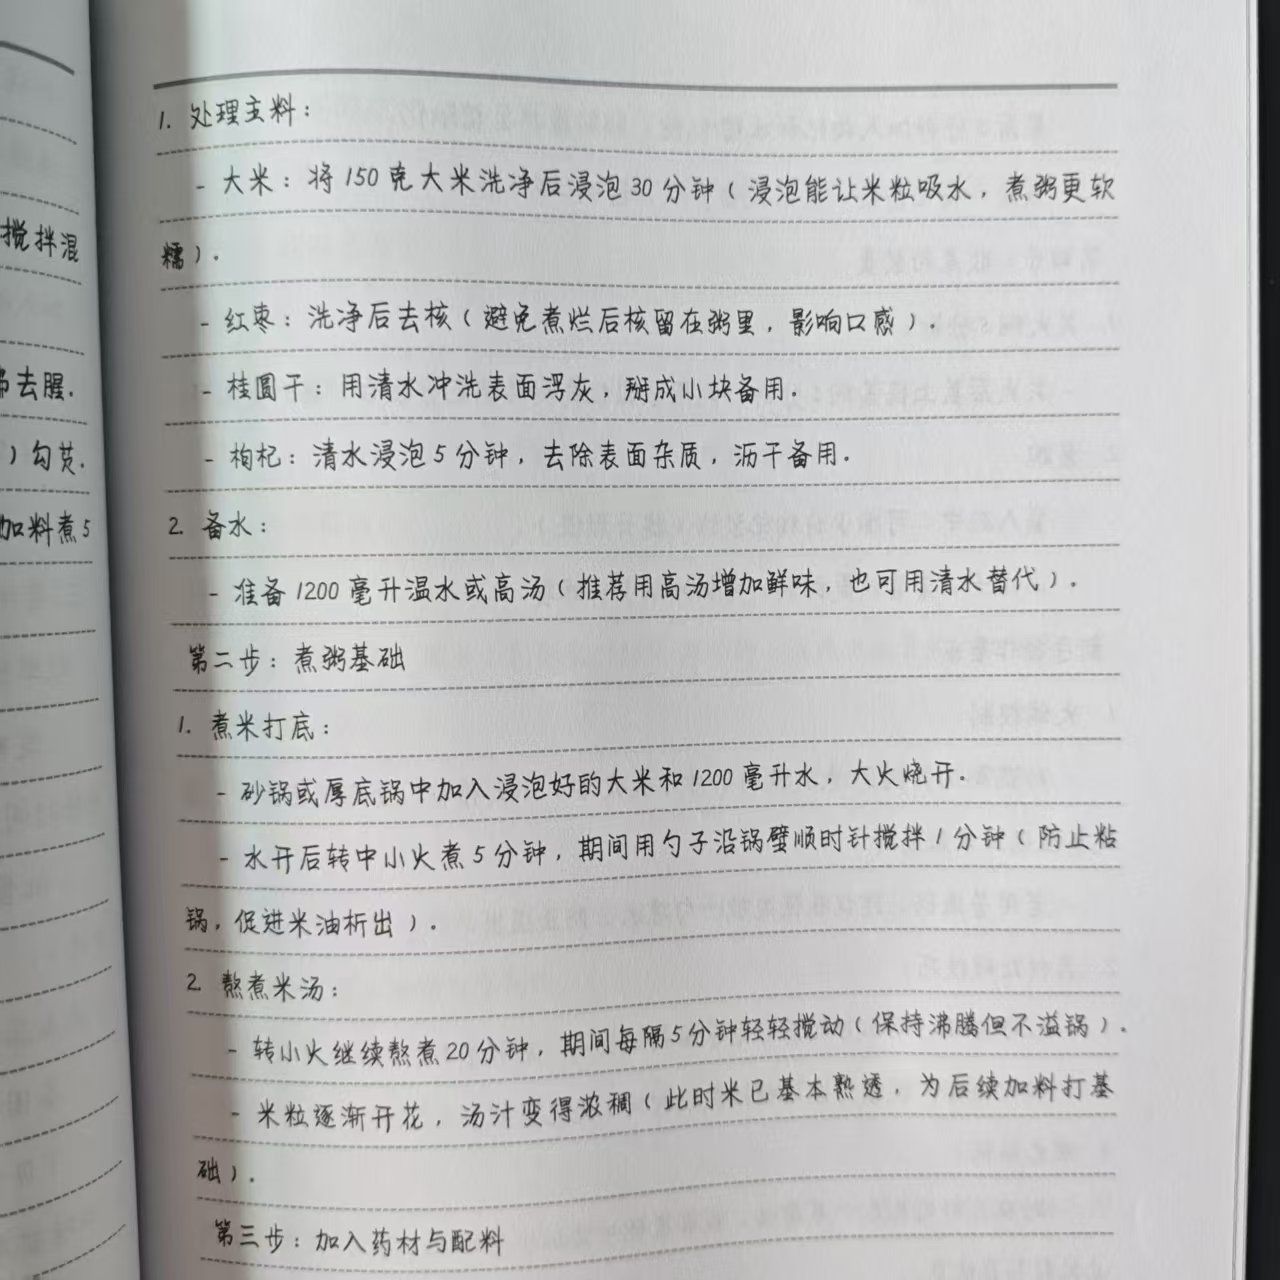 搅拌混
沸去腥.
）勾芡.
加料煮5
1. 处理主料：
- 大米：将150克大米洗净后浸泡30分钟（浸泡能让米粒吸水，煮粥更软
糯）.
- 红枣：洗净后去核（避免煮烂后核留在粥里，影响口感）.
- 桂圆干：用清水冲洗表面浮灰，掰成小块备用.
- 枸杞：清水浸泡5分钟，去除表面杂质，沥干备用.
2. 备水：
- 准备1200毫升温水或高汤（推荐用高汤增加鲜味，也可用清水替代）.
第二步：煮粥基础
1. 煮米打底：
- 砂锅或厚底锅中加入浸泡好的大米和1200毫升水，大火烧开.
- 水开后转中小火煮5分钟，期间用勺子沿锅壁顺时针搅拌1分钟（防止粘
锅，促进米油析出）.
2. 熬煮米汤：
- 转小火继续熬煮20分钟，期间每隔5分钟轻轻搅动（保持沸腾但不溢锅）.
- 米粒逐渐开花，汤汁变得浓稠（此时米已基本熟透，为后续加料打基
础）.
第三步：加入药材与配料